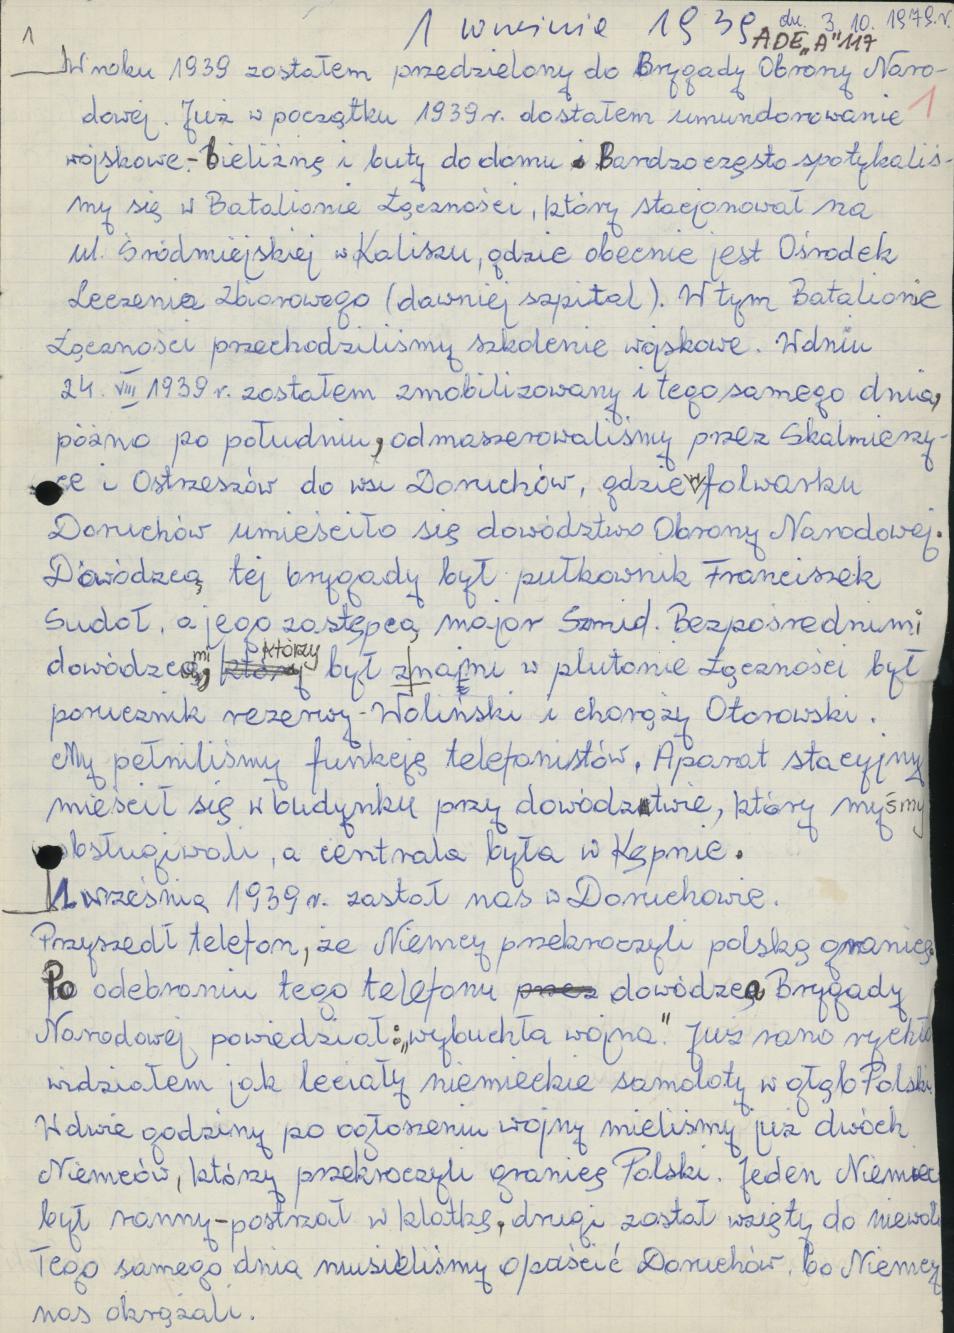 1 wrzśnia 1939 dn. 3.10.1979.r.
1 ADE „A" 117
W roku 1939 zostałem przedzielony do Brygady Obrony Naro-
dowej. Już w początku 1939 r. dostałem umundorowanie 1
wojskowe-bieliznę i buty do domu. Bardzo często spotykaliś-
my się w Batalionie Łączności, który stacjonował na
ul. Śródmiejskiej w Kaliszu, gdzie obecnie jest Ośrodek
Leczenia Zbiorowego (dawniej szpital). W tym Batalionie
Łączności przechodziliśmy szkolenie wojskowe. W dniu
24. VIII 1939 r. zostałem zmobilizowany i tego samego dnia,
późno po południu, odmaszerowaliśmy przez Skalmierzy-
ce i Ostrzeszów do wsi Doruchów, gdzie w folwarku
Doruchów umieściło się dowództwo Obrony Narodowej.
Dowódzcą tej brygady był pułkownik Franciszek
Sudoł, a jego zastępcą major Szmid. Bezpośrednimi
dowódzcami, który którzy był znajmi w plutonie Łączności był
porucznik rezerwy-Woliński i chorąży Otorowski.
My pełniliśmy funkcję telefonistów. Aparat stacyjny
mieścił się w budynku przy dowództwie, który myśmy
obsługiwali, a centrala była w Kępnie.
1 września 1939 r. zastał nas w Doruchowie.
Przyszedł telefon, że Niemcy przekroczyli polską granicę.
Po odebraniu tego telefonu przez dowódzca Brygady
Narodowej powiedział: „wybuchła wojna". Już rano rychło
widziałem jak leciały niemieckie samoloty w głąb Polski.
W dwie godziny po ogłoszeniu wojny mieliśmy już dwóch
Niemców, którzy przekroczyli granicę Polski. Jeden Niemiec
był ranny-postrzał w klatkę, drugi został wzięty do niewoli
Tego samego dnia musieliśmy opaścić Doruchów, bo Niemcy
nas okrążali.